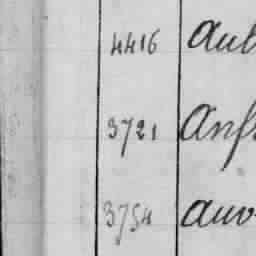 4416 Aub
3721 Anf
3754 Auv